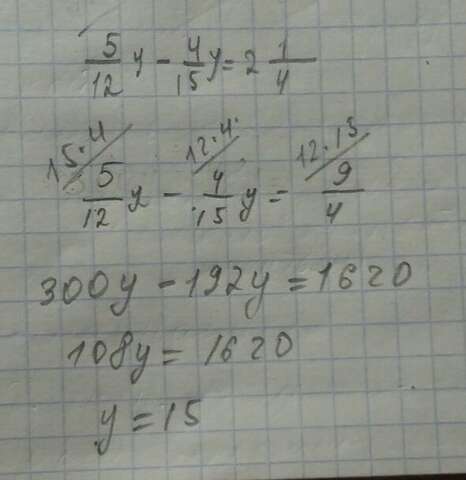 5/12 y - 4/15 y = 2 1/4
15·4 12·4 12·15
5/12 y - 4/15 y = 9/4
300y - 192y = 1620
108y = 1620
y = 15